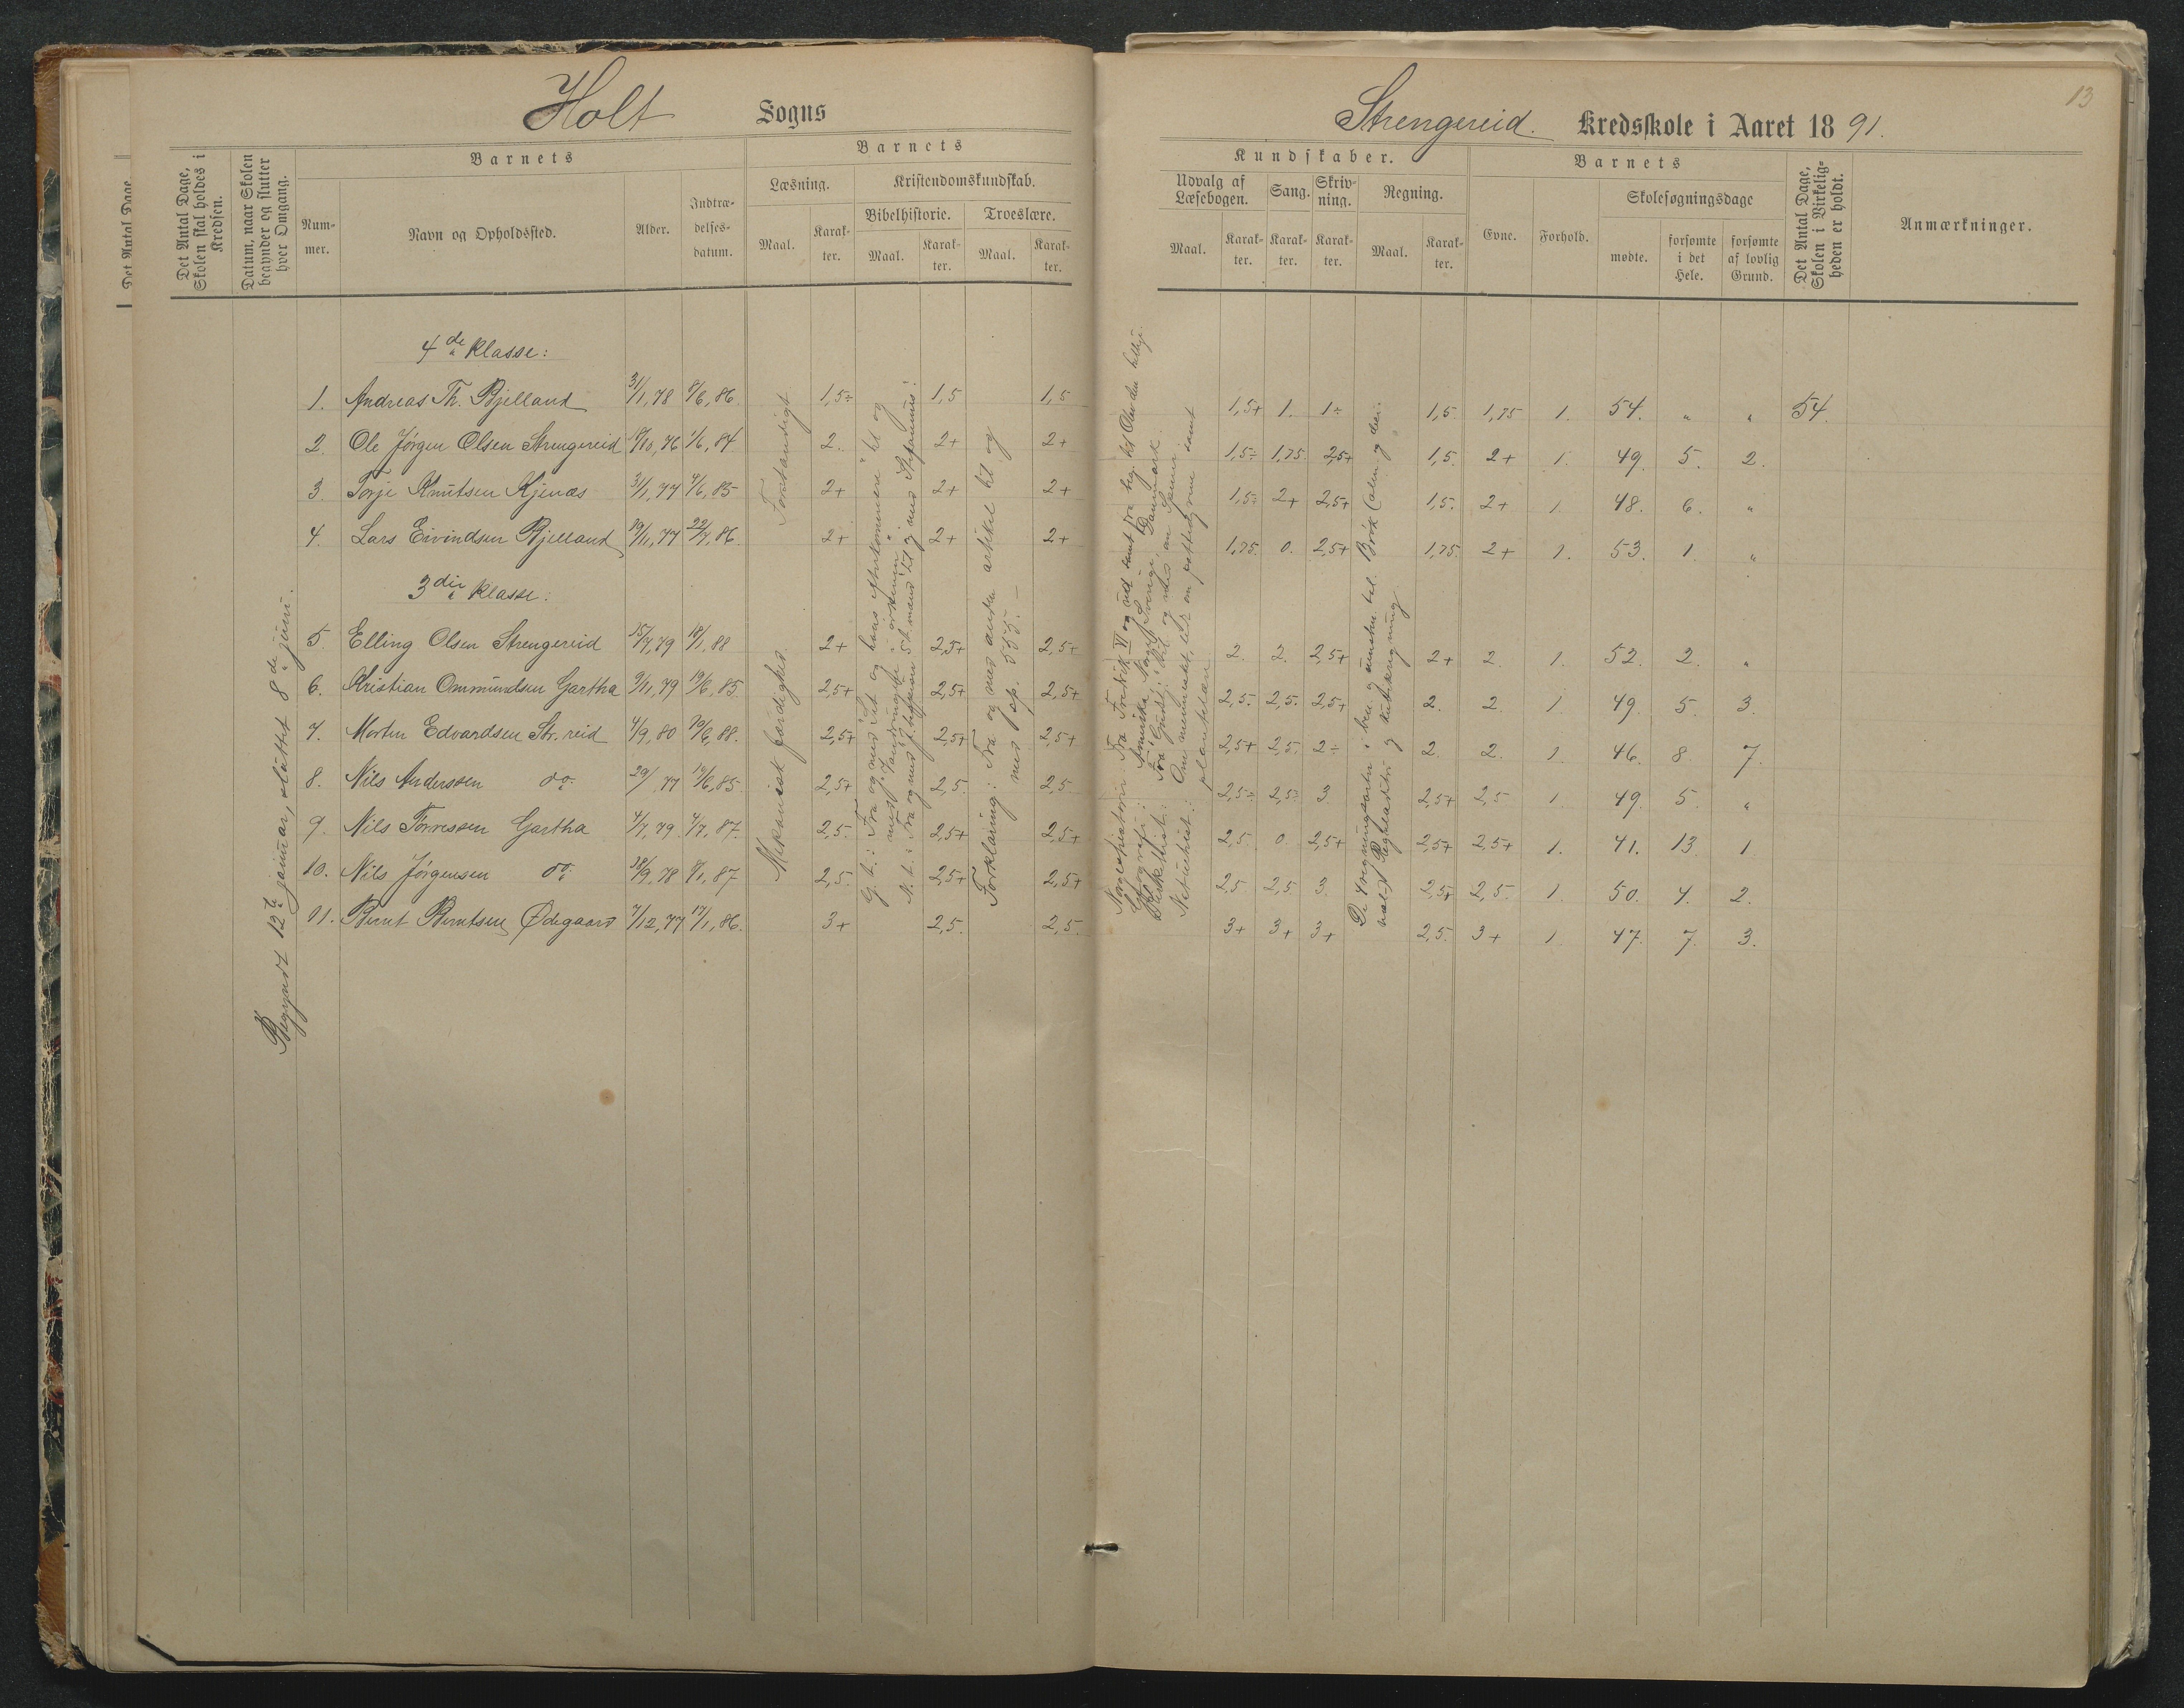 Holt Sogns
Det Antal Dage, Skolen skal holdes i Kredsen.
Datum, naar Skolen begynder og slutter hver Omgang.
Barnets
Nummer.
Navn og Opholdssted.
Alder.
Indtrædelsesdatum.
Barnets
Læsning.
Maal.
Karakter.
Kristendomskundskab.
Bibelhistorie.
Maal.
Karakter.
Troeslære.
Maal.
Karakter.
Begyndt 12te januar, sluttet 8de juni.
4de Klasse:
1. Andreas Th. Bjelland 31/1,78 8/6,86. 1,5÷ 1,5 1,5
2. Ole Jørgen Olsen Strengereid /10,76 1/6,84. 2. 2+ 2+
3. Torje Knutsen Kjenæs 31/1,77 4/6,85 2+ 2+ 2+
4. Lars Eivindsen Bjelland 19/11,77 22/7,86. 2+ 2+ 2+
3die Klasse:
5. Elling Olsen Strengereid 15/7,79 18/1,88 2+ 2,5+ 2,5+
6. Kristian Ommundsen Gartha 9/11,79 19/6,85. 2,5+ 2,5+ 2,5+
7. Morten Edvardsen Str.reid 4/9,80 20/6,88. 2,5+ 2,5+ 2,5+
8. Nils Anderssen do: 29/ ,77 19/6,85. 2,5+ 2,5. 2,5
9. Nils Torressen Gartha 4/7,79 4/7,87. 2,5. 2,5+ 2,5+
10. Nils Jørgensen do: 28/9,78 8/1,87. 2,5. 2,5+ 2,5+
11. Bernt Berntsen Ødegaard 7/12,77 17/1,86. 3+ 2,5. 2,5.
Mekanisk færdighed. Forstandigt
G. t.: Fra og med
N. t.: Fra og med
Forklaring: Fra og med anden artikel til og
med sp. 555.
13
Strengereid. Kredsskole i Aaret 1891.
Kundskaber.
Udvalg af Læsebogen.
Maal.
Karakter.
Sang.
Karakter.
Skrivning.
Karakter.
Regning.
Maal.
Karakter.
Barnets
Evne.
Forhold.
Skolesøgningsdage
mødte.
forsømte i det Hele.
forsømte af lovlig Grund.
Det Antal Dage, Skolen i Virkeligheden er holdt.
Anmærkninger.
1,5+ 1. 1÷ 1,5 1,75 1. 54. " " 54.
1,5÷ 1,75. 2,5+ 1,5. 2+ 1. 49. 5. 2.
1,5÷ 2+ 2,5+ 1,5. 2+ 1. 48. 6. "
1,75. 0. 2,5+ 1,75. 2+ 1. 53. 1. "
2. 2. 2,5+ 2+ 2. 1. 52. 2. "
2,5. 2,5. 2,5+ 2. 2. 1. 49. 5. 3.
2,5+ 2,5. 2÷ 2. 2. 1. 46. 8. 7.
2,5÷ 2,5÷ 3 2,5+ 2,5 1. 49. 5. "
2,5. 0. 2,5+ 2,5+ 2,5+ 1. 41. 13. 1
2,5. 2,5 3. 2,5+ 2,5. 1. 50. 4. 2.
3+ 3+ 3+ 2,5. 3+ 1. 47. 7. 3.
Norgeshistorie: Fra Fredrik VI og ud samt fra beg. til Olav den hellige.
Geografi: Amerika, Norge, Sverige, Danmark.
De 4 regningsarter i